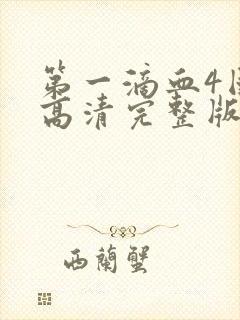 第一滴血4国
高清完整版
西蘭蟹